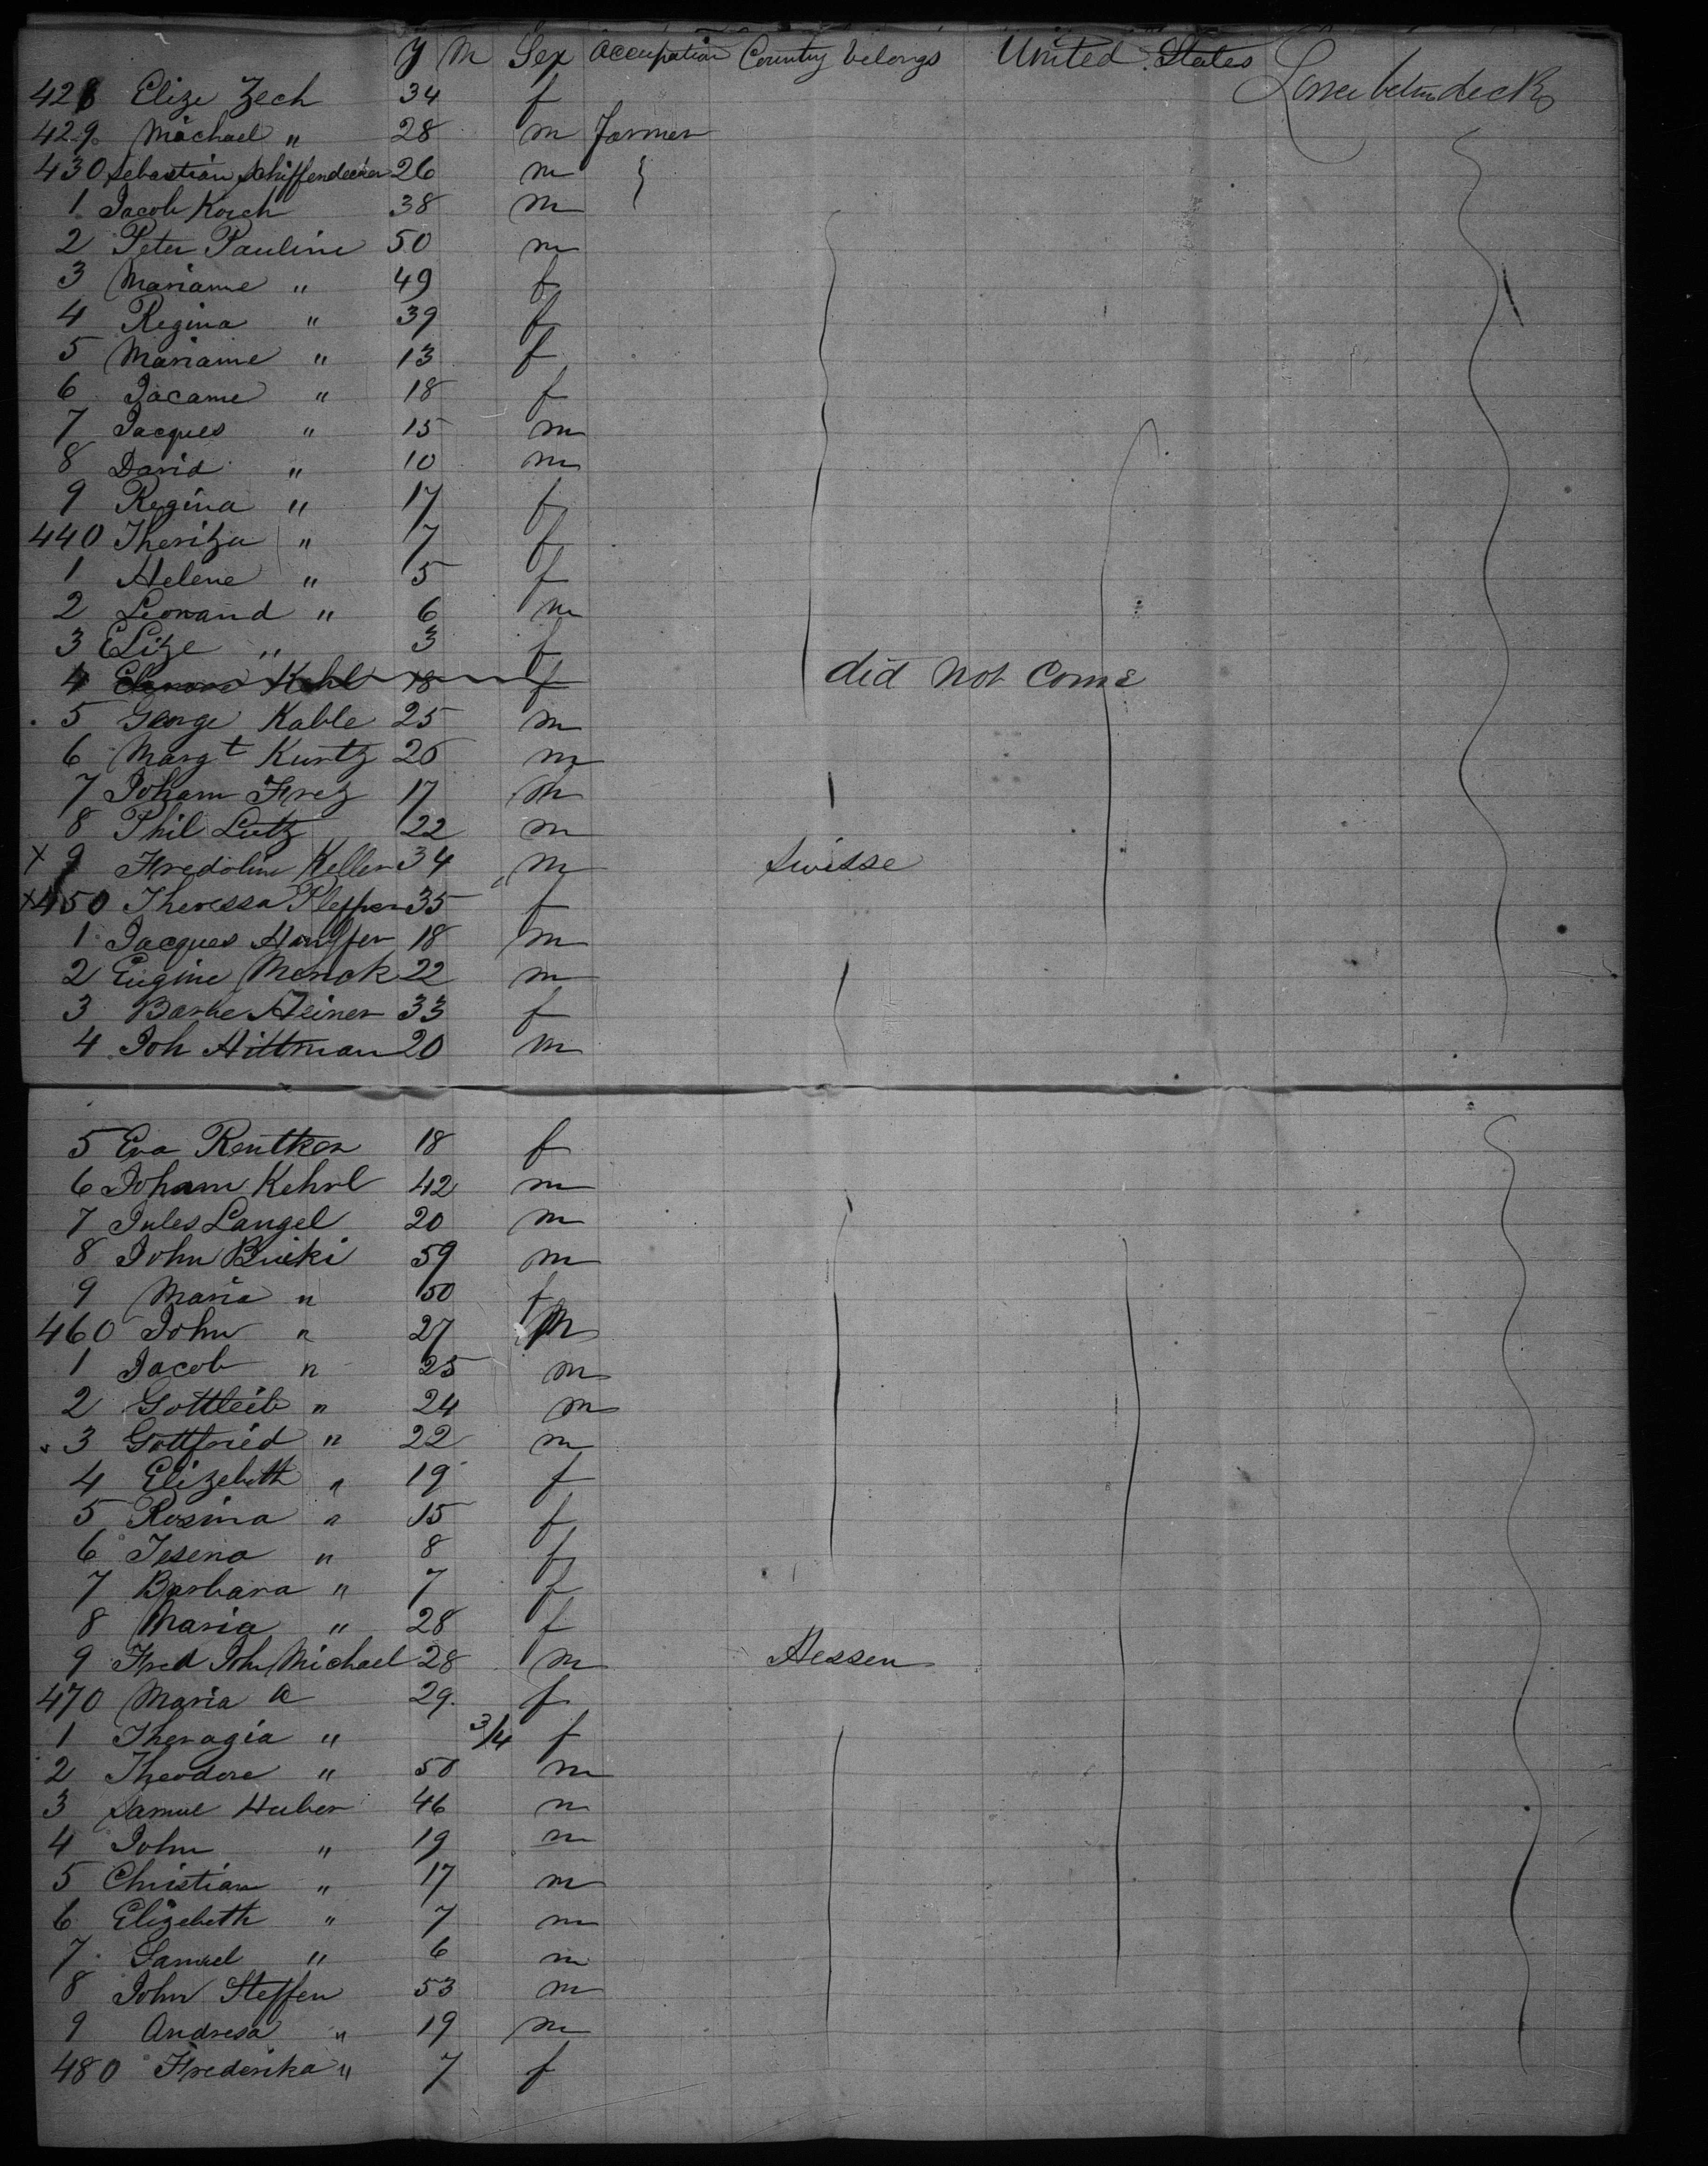 y m Sex Occupation Country belongs United States
428 Elize Zech 34 f Lower between decks
429 Michael " 28 m Farmer
430 Sebastian Schiffendecker 26 m
1 Jacob Korch 38 m
2 Peter Pauline 50 m
3 Marianne " 49 f
4 Regina " 39 f
5 Marianne " 13 f
6 " 18 f
7 Jacques " 15 m
8 David " 10 m
9 Regina " 17 f
440 " 7 f
1 Helene " 5 f
2 Leonard " 6 m
3 Elize " 3 f
4 Kehl 18 f did not come
5 George Kable 25 m
6 Margt Kuntz 26 m
7 Joham Frez 17 m
8 Phil Lutz 22 m
x 9 Fredolin Keller 34 m Swisse
x 450 Theressa 35 f
1 Jacques 18 m
2 Eugine Menck 22 m
3 Barbe Heiner 33 f
4 Joh Hittman 20 m
5 Eva Rentker 18 f
6 Joham Kehrl 42 m
7 Jules Langel 20 m
8 John 59 m
9 Maria " 50 f
460 John " 27 m
1 Jacob " 25 m
2 Gottleib " 24 m
3 Gottfried " 22 m
4 Elizebeth " 19 f
5 Rosina " 15 f
6 Jesena " 8 f
7 Barbara " 7 f
8 Maria " 28 f
9 Fred John Michael 28 m Hessen
470 Maria a 29 f
1 Theragia " 3/4 f
2 Theodore " 50 m
3 Samul Huber 46 m
4 John " 19 m
5 Christian " 17 m
6 Elizebeth " 7 m
7 Samuel " 6 m
8 John Steffen 53 m
9 Andresa " 19 m
480 Frederika " 7 f